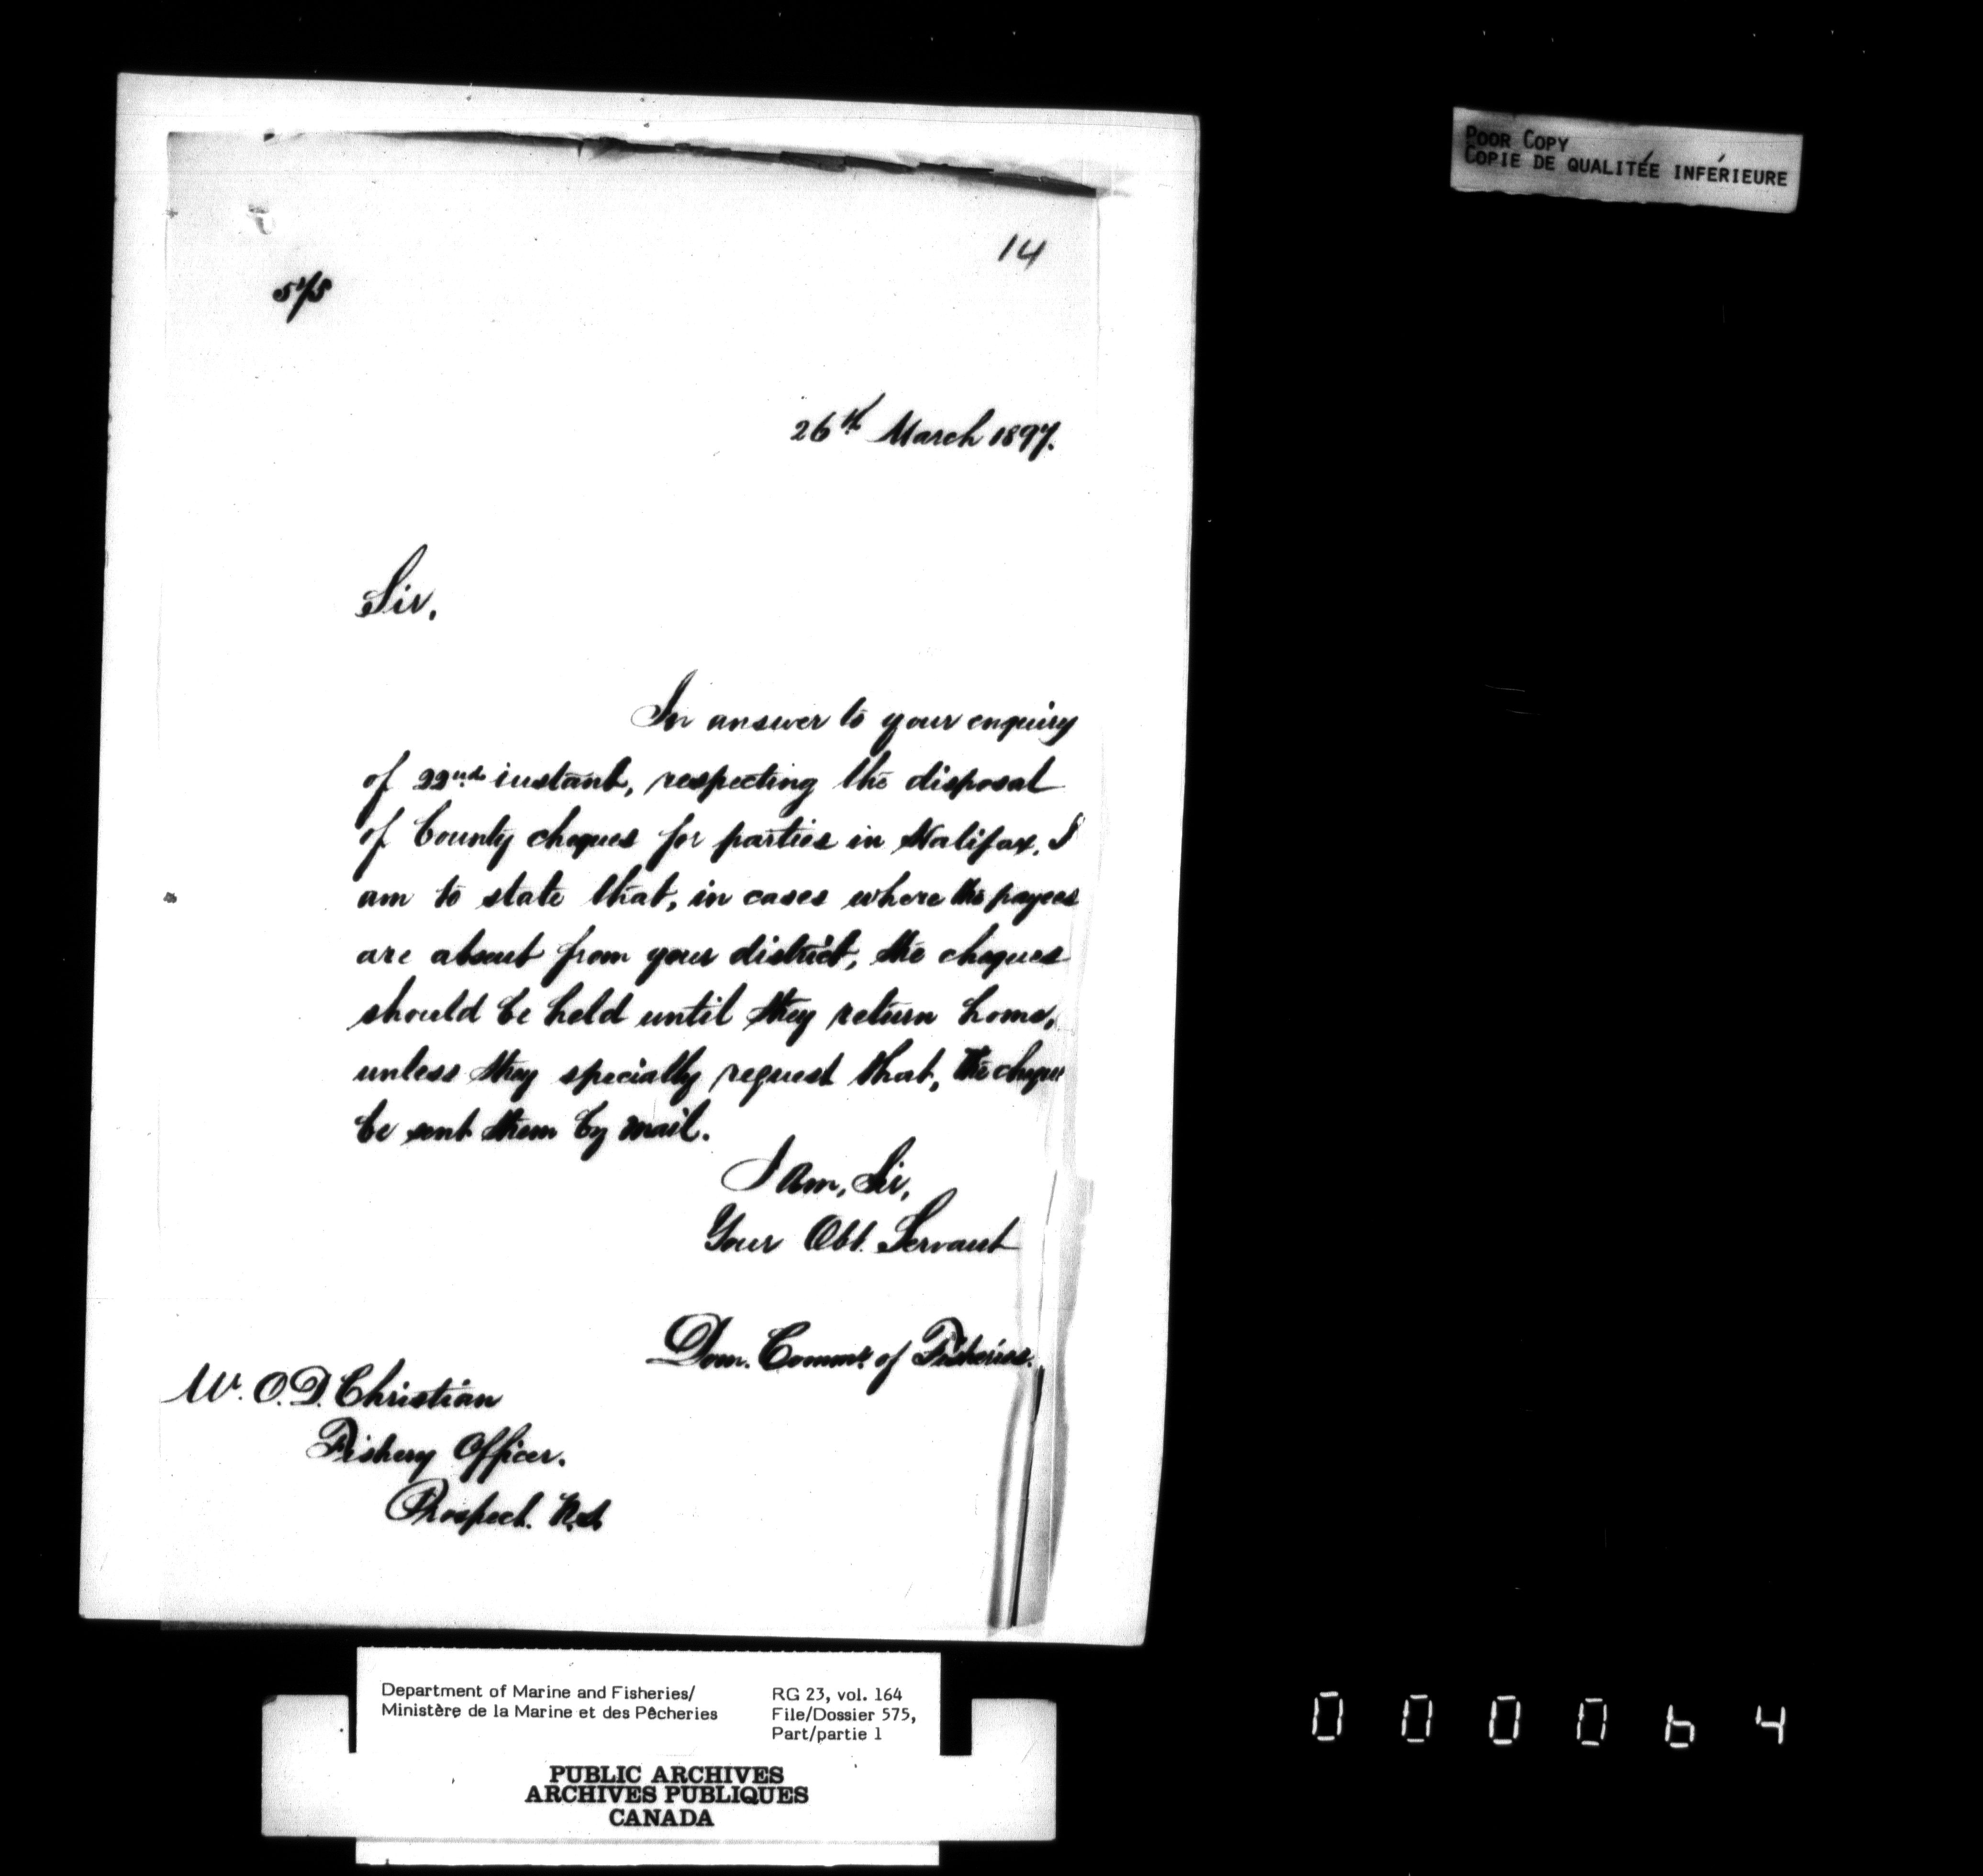 POOR COPY
COPIE DE QUALITÉE INFÉRIEURE
14
575
26th March 1897.
Sir,
In answer to your enquiry
of 22nd instant, respecting the disposal
of County cheques for parties in Halifax, I
am to state that, in cases where the payees
are absent from your district, the cheques
should be held until they return home,
unless they specially request that, the cheques
be sent them by mail.
I Am, Sir,
Your Obt. Servant
Dom. Commr. of Fisheries.
Mr. O. D. Christian
Fishery Officer.
Prospect. N.S.
Department of Marine and Fisheries/
Ministère de la Marine et des Pêcheries
RG 23, vol. 164
File/Dossier 575,
Part/partie 1
PUBLIC ARCHIVES
ARCHIVES PUBLIQUES
CANADA
000064